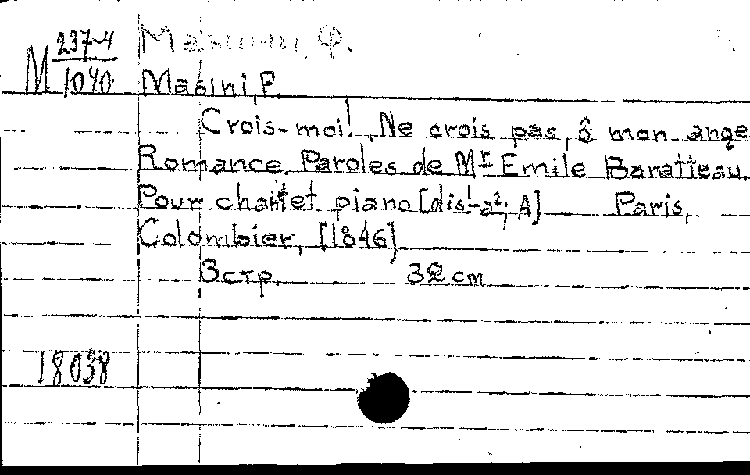 М 237-4
1040
Мазини, Ф.
Masini, F.
Crois-moi! Ne crois pas, ô mon ange
Romance. Paroles de Mr Emile Baratteau.
Pour chant et piano [dis¹-a², A] Paris,
Colombier, [1846]
3 стр. 32 cm
18038